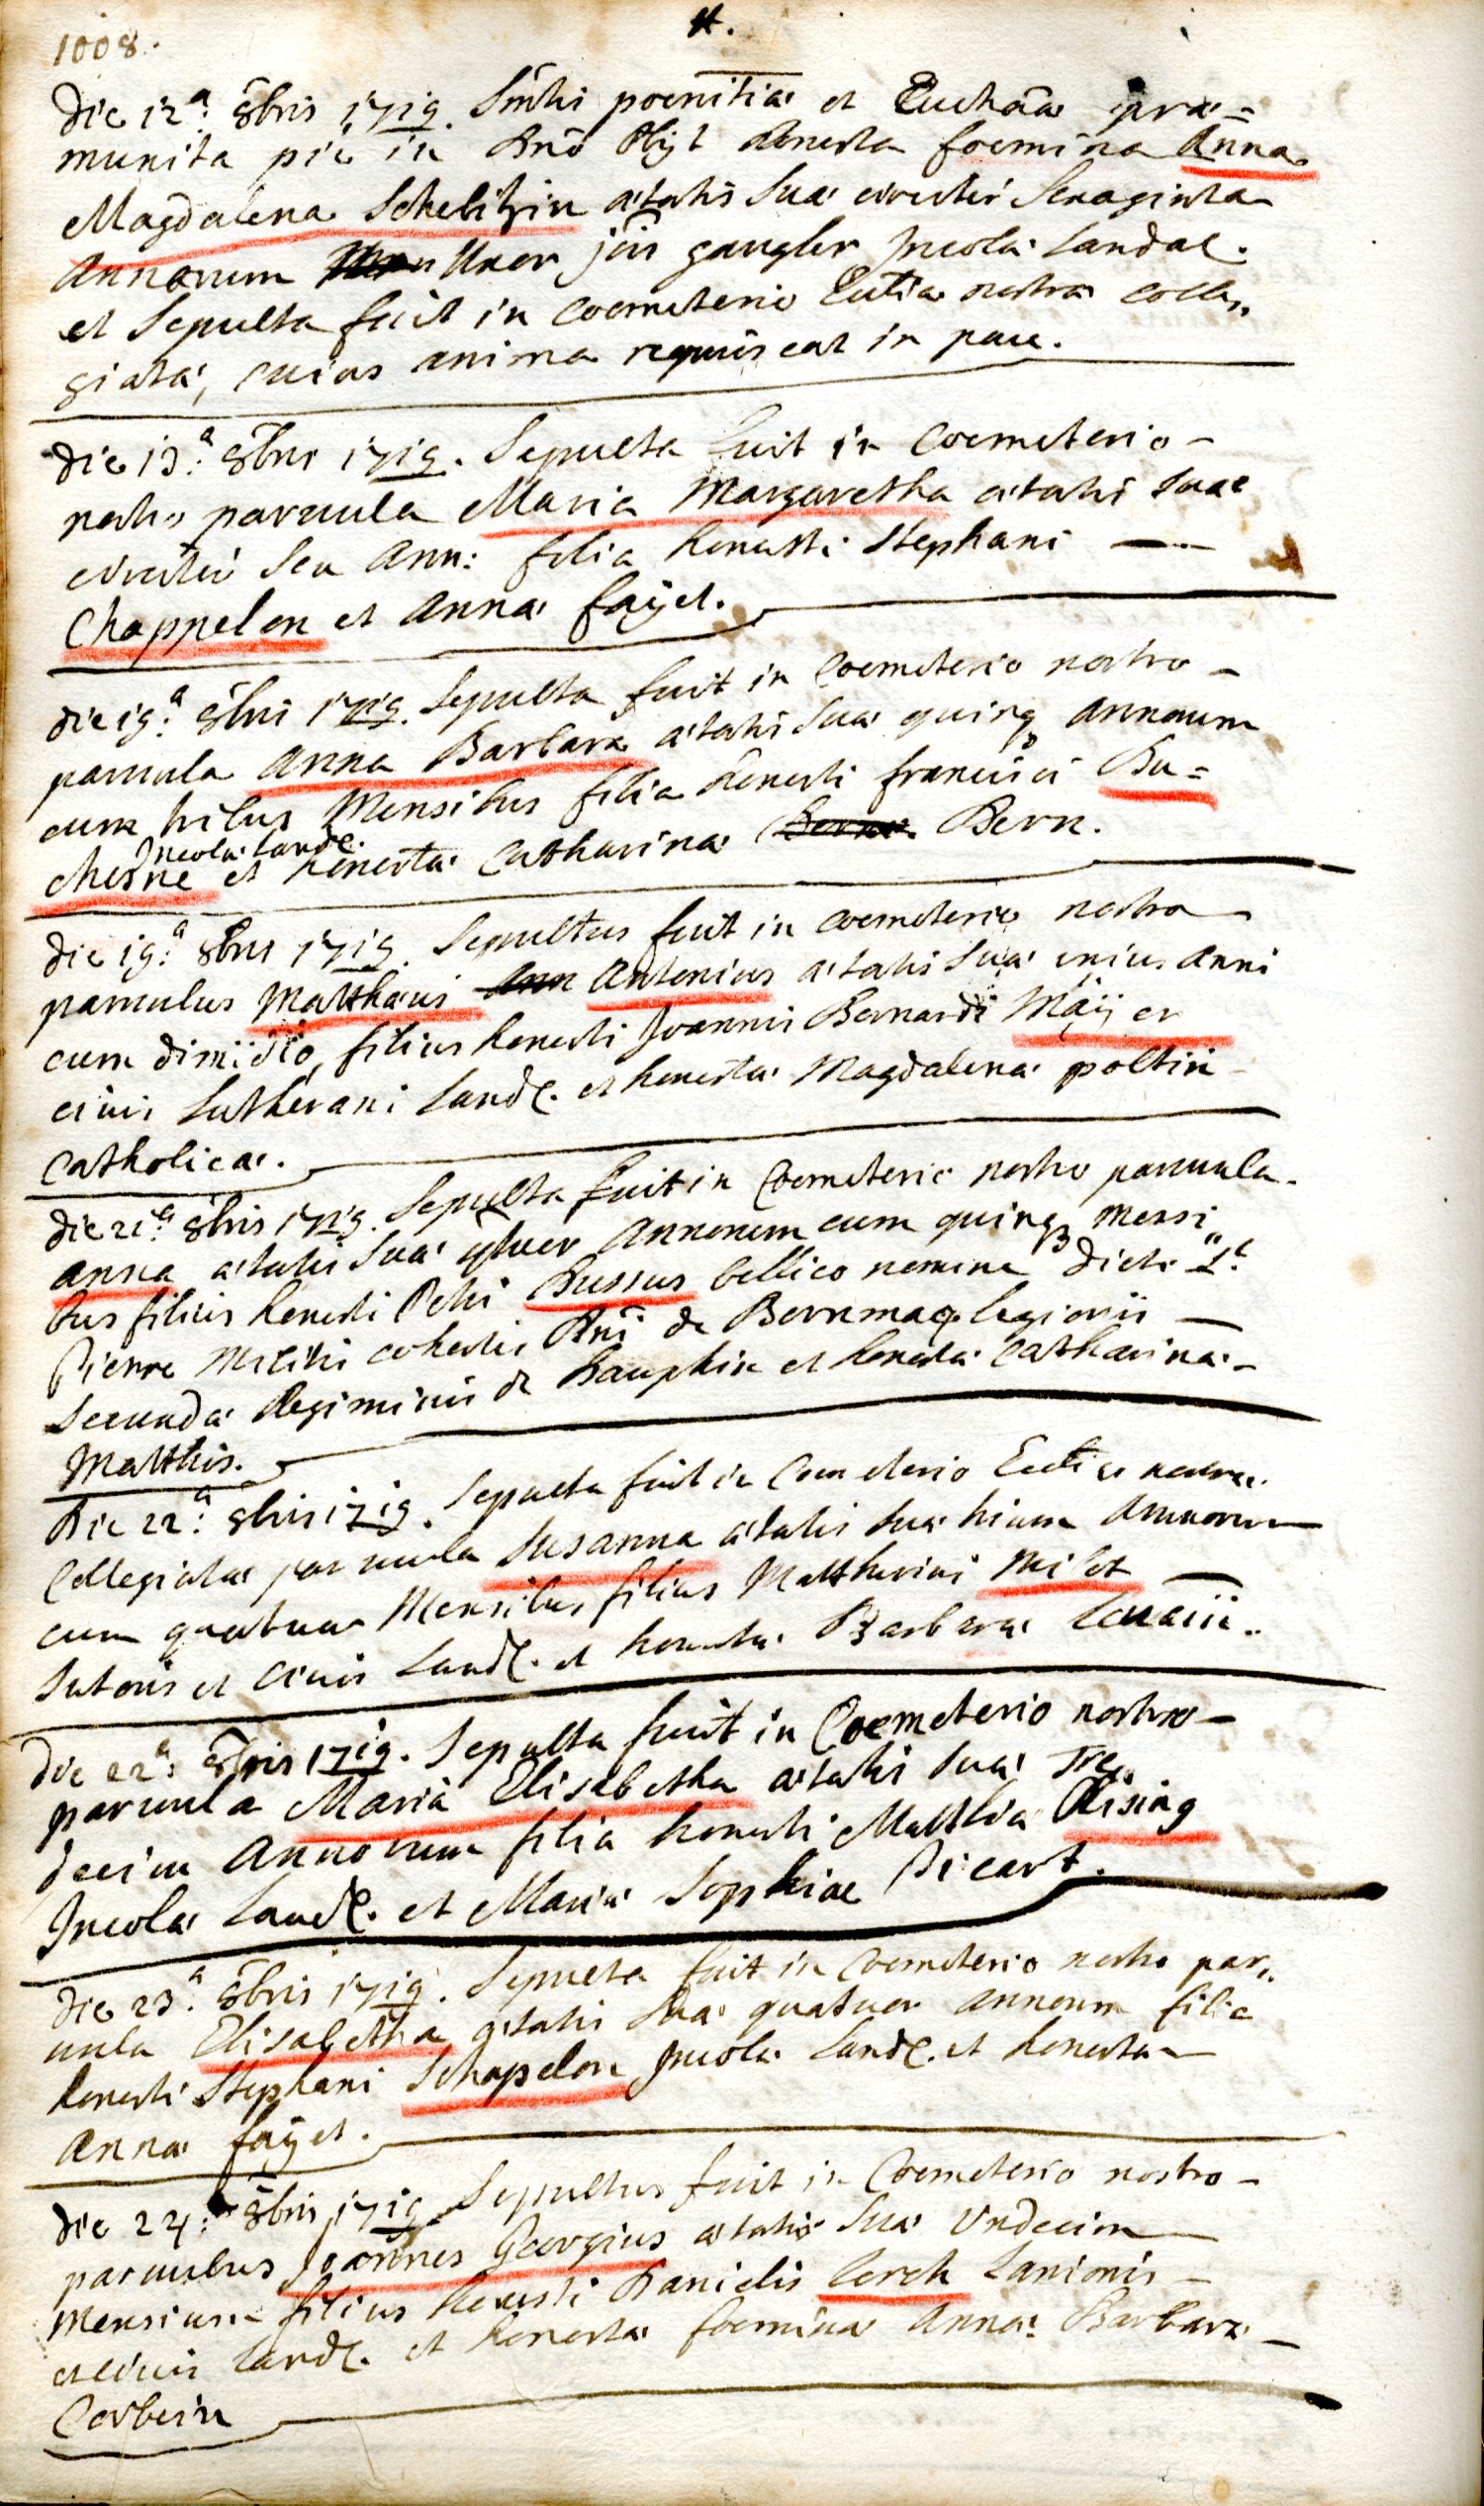 1008.
#.
Die 12ª: 8bris 1719. Smtis poenitiæ et Euchãa præ=
munita pie in Dno obyt honesta foemina Anna
Magdalena Schelitzin ætatis suæ circiter sexaginta
Annorum uxor jois gangler Incolæ Landae.
et Sepulta fuit in coemeterio Ecctiæ nostræ colle„
giatæ, cuius anima requiescat in pace.
die 13.ª 8bris 1719. Sepulta fuit in Coemeterio -
nostro parvula Maria Margaretha ætatis suae
circiter sex Ann: filia honesti Stephani —
Chappelon et Annæ fayet.
die 19.ª 8bris 1719. Sepulta fuit in Coemeterio nostro -
parvula Anna Barbara ætatis suæ quinq annorum
cum tribus Mensibus filia honesti francisci Du=
Incolæ Landæ.
chesne et honestæ Catharinæ Bern.
Die 19.ª 8bris 1719. Sepultus fuit in coemeterio nostro
parvulus Matthæus Antonius ætatis suæ unius anni
cum dimidio, filius honesti Joannis Bernardi Mayer
civis Lutherani Landæ. et honestæ Magdalenæ poltin
Catholicæ.
Die 21.ª 8bris 1719. Sepulta fuit in Coemeterio nostro parvula.
Anna ætatis suæ qtuor Annorum cum quinq mensi„
bus filius honesti Petri Bussus bellico nomine dicti St.
Pierre Militis cohortis Dni de legionis —
Secundæ Regiminis de Dauphin et honestæ Catharinæ -
Matthis.
Die 22.ª 8bris 1719. Sepulta fuit in Coemeterio Ecctiæ nostræ.
Collegiatæ parvula Susanna ætatis suæ trium Annorum
cum quatuor Mensibus filius Matthurini Milet —
Sutoris et civis Landæ. et honestæ Barbaræ
Die 22ª 8bris 1719. Sepulta fuit in Coemeterio nostro -
parvula Maria Elisabetha ætatis suæ Tre„
decim Annorum filia honesti Matthiæ Rising
Incolæ Landæ. et Mariæ Sophiae Picart.
Die 23.ª 8bris 1719. Sepulta fuit in Coemeterio nostro par„
vula Elisabetha ætatis suæ quatuor annorum filia
honesti Stephani Schapelon Incolæ Landæ. et honestæ
Annæ fayet.
Die 24: 8bris 1719 Sepultus fuit in Coemeterio nostro -
parvulus Joannes Georgius ætatis suæ Undecim
Mensium filius honesti Danielis Lerch Lanionis -
et civis Landæ. et honestæ foeminæ Annæ Barbaræ -
Corbein